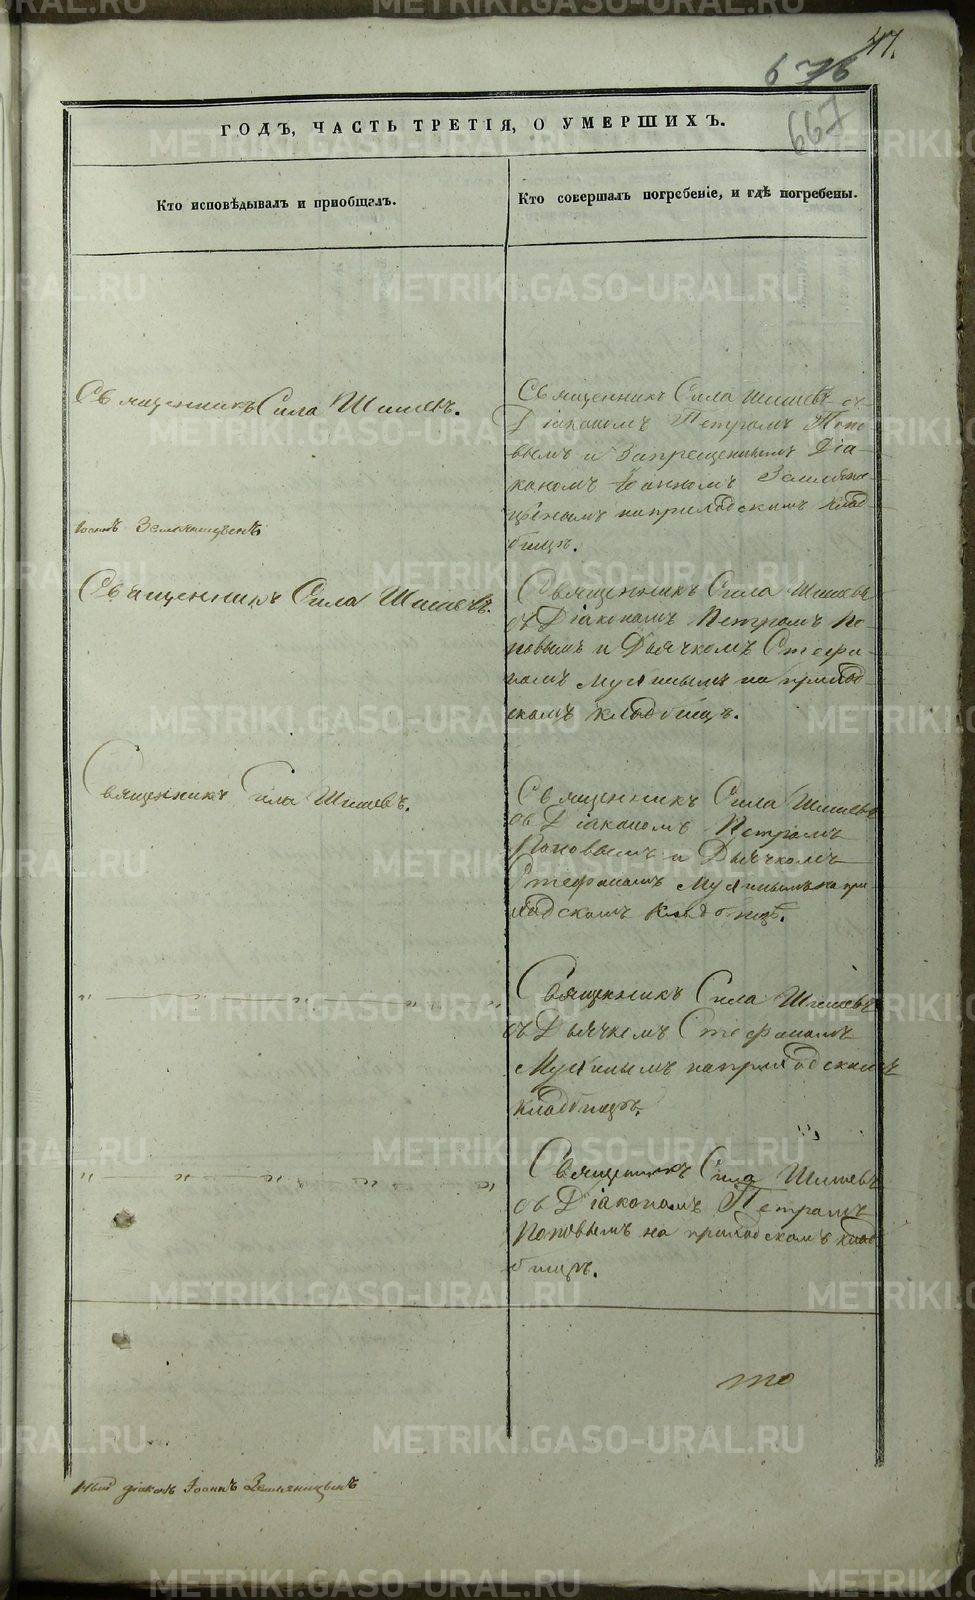 47.
667
ГОДЪ, ЧАСТЬ ТРЕТІЯ, О УМЕРШИХЪ.
Кто исповѣдывалъ и пріобщалъ.
Кто совершалъ погребеніе, и гдѣ погребены.
Священникъ Сила Шишевъ.
Іоаннъ Земляницынъ
Священникъ Сила Шишевъ съ
Діакономъ Петромъ Попо-
вымъ и Запрещеннымъ Діа-
кономъ Іоанномъ Земляни-
цынымъ на приходскомъ клад-
бищѣ.
Священникъ Сила Шишевъ.
Священникъ Сила Шишевъ
съ Діакономъ Петромъ По-
повымъ и Дьячкомъ Стефа-
номъ на приход-
скомъ кладбищѣ.
Священникъ Сила Шишевъ.
Священникъ Сила Шишевъ
съ Діакономъ Петромъ
Поповымъ и Дьячкомъ
Стефаномъ на при-
ходскомъ кладбищѣ.
Священникъ Сила Шишевъ
съ Дьячкомъ Стефаномъ
на приходскомъ
кладбищѣ.
Священникъ Сила Шишевъ
съ Діакономъ Петромъ
Поповымъ на приходскомъ клад-
бищѣ.
то
ный діаконъ Іоаннъ Земляницынъ
METRIKI.GASO-URAL.RU